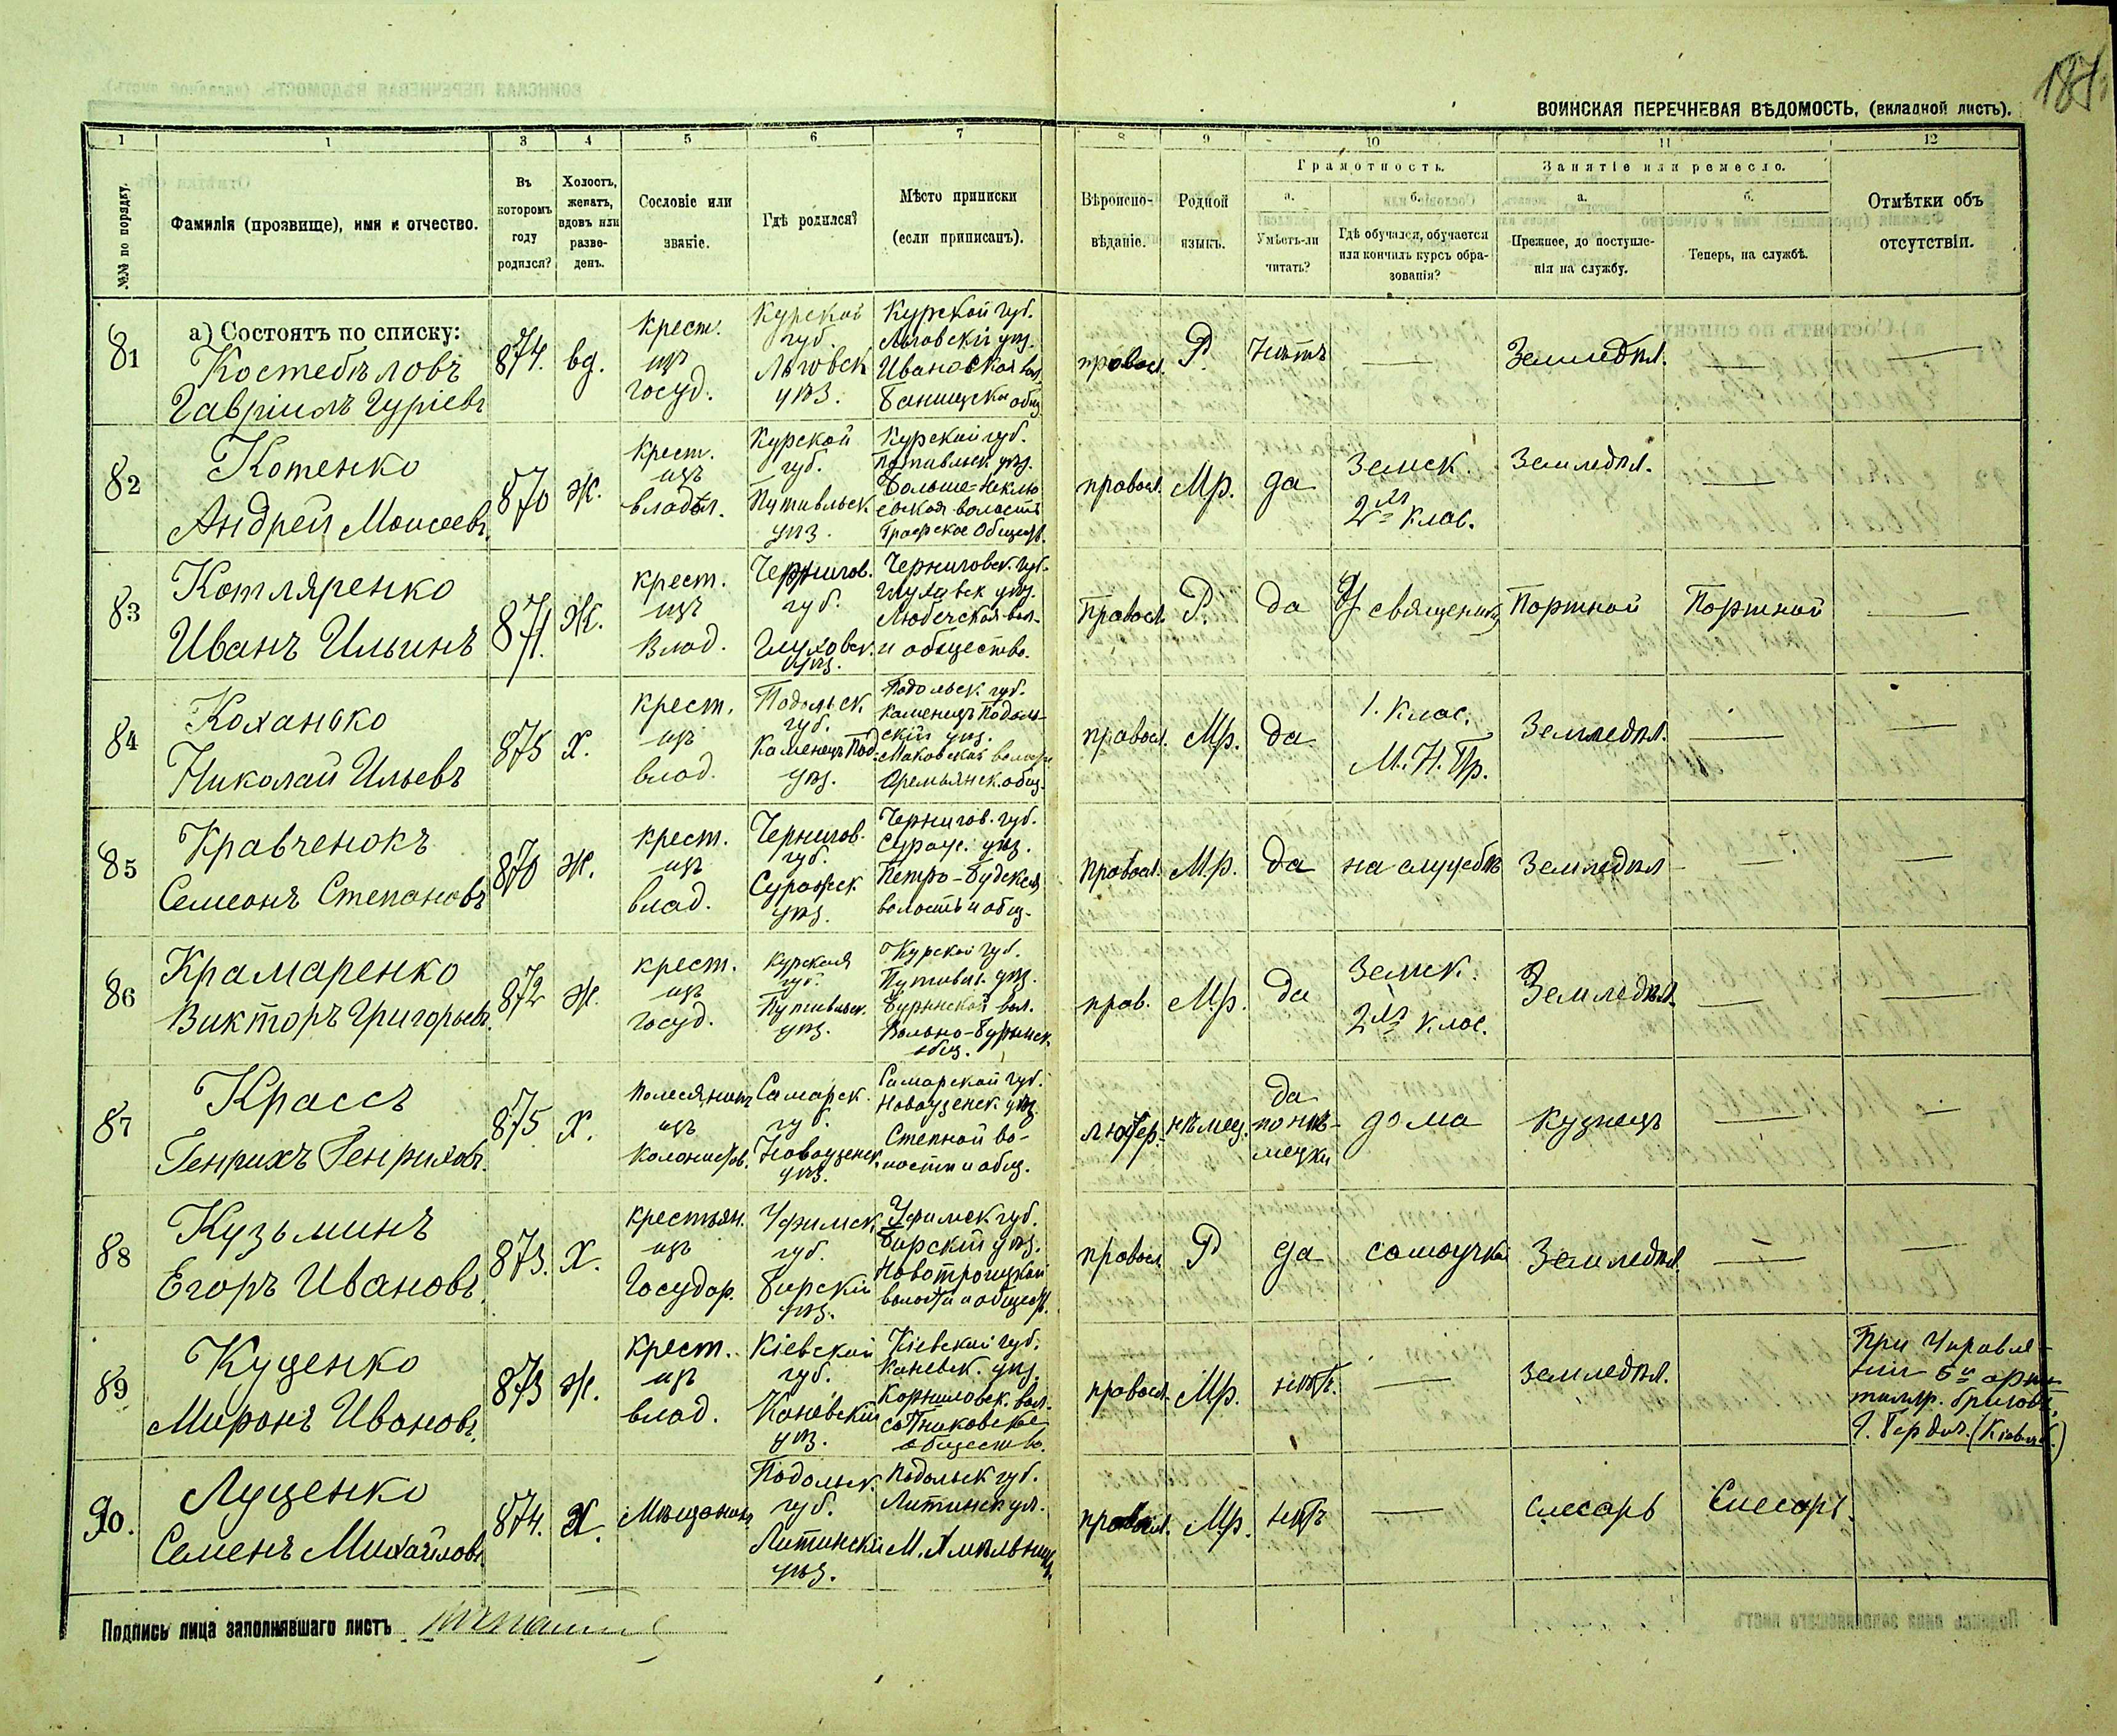 187
ВОИНСКАЯ ПЕРЕЧНЕВАЯ ВѢДОМОСТЬ, (вкладной листъ).
1 1 3 4 5 6 7 8 9 10 11 12
№№ по порядку.
Фамилія (прозвище), имя и отчество.
Въ которомъ году родился?
Холостъ, женатъ, вдовъ или разведенъ.
Сословіе или званіе.
Гдѣ родился?
Мѣсто приписки (если приписанъ).
Вѣроисповѣданіе.
Родной языкъ.
Грамотность.
а. Умѣетъ-ли читать?
б. Гдѣ обучался, обучается или кончилъ курсъ образованія?
Занятіе или ремесло.
а. Прежнее, до поступленія на службу.
б. Теперь, на службѣ.
Отмѣтки объ отсутствіи.
а) Состоятъ по списку:
81 Костебѣловъ Гавріилъ Гуріевъ 874. вд. крест. изъ госуд. Курской губ. Льговск уѣз. Курской губ. Льговскій уѣз. Ивановская вол. Банищски общ правосл. Р. нѣтъ — Земледѣл. — —
82 Котенко Андрей Моисеевъ 870 ж. крест. изъ владѣл. Курской губ. Путивльск. уѣз. Курской губ. Путивльск. уѣз. Больше-Неклюевская волость Графское Обществ. правосл. Мр. да Земск. 2хъ клас. Земледѣл. —
83 Котляренко Иванъ Ильинъ 871. ж. крест. изъ влад. Чернигов. губ. Глуховск. уѣз. Черниговск. губ. Глуховск уѣз. вол. и общество. Правосл. Р. да У священник Портной Портной —
84 Коханско Николай Ильевъ 875 х. крест. изъ влад. Подольск. губ. Каменецъ Под. уѣз. Подольск. губ. Каменецъ Подольскій уѣз. Маковская волость общ. правосл. Мр. да 1. клас. М. Н. Пр. Земледѣл. — —
85 Кравченокъ Семеонъ Степановъ 870 ж. крест. изъ влад. Чернигов. губ. Суражск. уѣз. Чернигов. губ. Сураж. уѣз. Петро-Будская волость и общ. Правосл. Мр. да на службѣ Земледѣл — —
86 Крамаренко Викторъ Григорьевъ 872 ж. крест. изъ госуд. Курская губ. Путивльск. уѣз. Курской губ. Путивл. уѣз. Бурынской вол. Вольно-Бурынск. общ. прав. Мр. да Земск. 2хъ клас. Земледѣл. — —
87 Крассъ Генрихъ Генриховъ 875 х. изъ колонистов. Самарск. губ. Новоузенск. уѣз. Самарской губ. Новоузенск уѣз. Степной волости и общ. лютер. нѣмец. да по нѣмецки дома Кузнецъ — —
88 Кузьминъ Егоръ Ивановъ 873. х. крестьян. изъ Государ. Уфимск. губ. Бирскій уѣз. Уфимск губ. Бирскій уѣз. Новотроицкой волости и обществ. правосл. Р да самоучка Земледѣл. — —
89 Куценко Миронъ Ивановъ 873 ж. крест. изъ влад. Кіевской губ. Каневскій уѣз. Кіевской губ. Каневск. уѣз. Корниловск. вол. Сотниковское общество. правосл. Мр. нѣтъ. — Земледѣл. При Управленіи 5й артиллр. бригады, Г. Бердич. (Кіевск.)
90. Луценко Семенъ Михайловъ 874. х. Мѣщанинъ Подольск. губ. Литинскій уѣз. Подольск губ. Литинск уѣз. М. Хмѣльникъ правосл. Мр. нѣтъ — Слесарь Слесарь.
Подпись лица заполнявшаго листъ